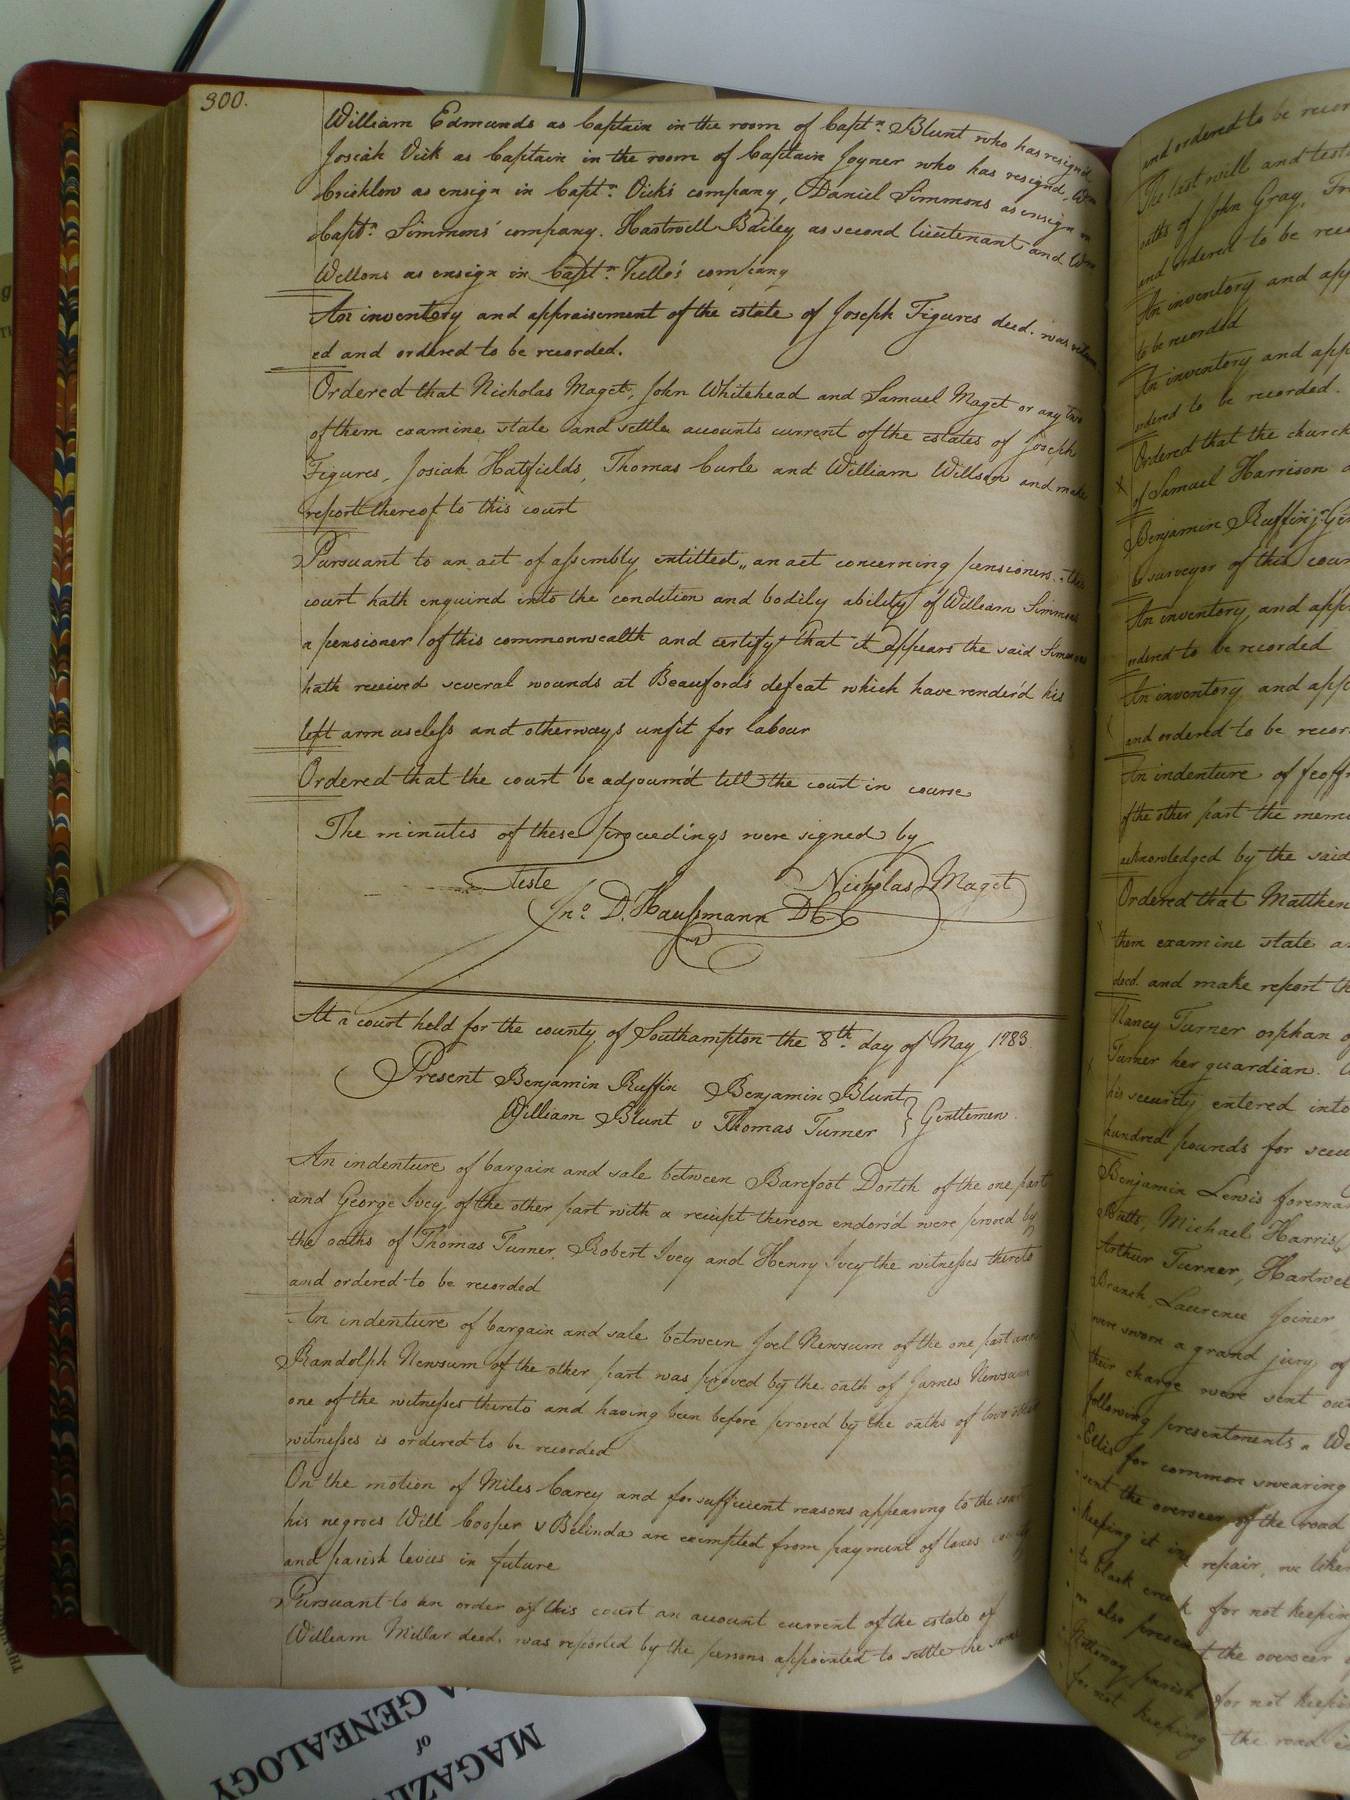 300.
William Edmunds as Captain in the room of Captn. Blunt who has resign'd
Josiah Vick as Captain in the room of Captain Joyner who has resignd, Wm
Cricklow as ensign in Captn. Vick's company, Daniel Simmons as ensign in
Captn. Simmons' company. Hartwell Bailey as second lieutenant and Wm
Wellons as ensign in Captn. company
An inventory and appraisement of the estate of Joseph Figures deed. was return
ed and ordered to be recorded.
Ordered that Nicholas Maget, John Whitehead and Samuel Maget or any two
of them examine state and settle accounts current of the estates of Joseph
Figures, Josiah Hatfields, Thomas Curle and William Willson and make
report thereof to this court
Pursuant to an act of assembly entitled „ an act concerning pensioners. this
court hath enquired into the condition and bodily ability of William Simmons
a pensioner of this commonwealth and certify that it appears the said Simmons
hath received several wounds at Beauford's defeat which have render'd his
left arm useless and otherways unfit for labour
Ordered that the court be adjourn'd till the court in course
The minutes of these proceedings were signed by
Teste Nicholas Maget
Jno. D. Haussmann DCC
At a court held for the county of Southampton the 8th. day of May 1783.
Present Benjamin Ruffin Benjamin Blunt
William Blunt v Thomas Turner } Gentlemen.
An indenture of bargain and sale between Barefoot Dortch of the one part
and George Ivey of the other part with a reciept thereon endors'd were proved by
the oaths of Thomas Turner, Robert Ivey and Henry Ivey the witnesses thereto
and ordered to be recorded
An indenture of bargain and sale between Joel Newsum of the one part and
Randolph Newsum of the other part was proved by the oath of James Newsum
one of the witnesses thereto and having been before proved by the oaths of two other
witnesses is ordered to be recorded
On the motion of Miles Carey and for sufficient reasons appearing to the court
his negroes Will Cooper v Belinda are exempted from payment of taxes county
and parish levies in future
Pursuant to an order of this court an account current of the estate of
William Millar deed. was reported by the persons appointed to settle the same
and ordered to be recor
The last will and test
oaths of John Gray,
and ordered to be rec
An inventory and app
to be recorded
An inventory and app
ordered to be recorded.
Ordered that the church
of Samuel Harrison
Benjamin Ruffin jr Gen
to surveyor of this coun
An inventory and app
ordered to be recorded
An inventory and app
and ordered to be recor
An indenture of feoff
of the other part the mem
acknowledged by the said
Ordered that Matthew
them examine state a
deed. and make report th
Nancy Turner orphan o
Turner her guardian.
his security entered into
hundred pounds for secu
Benjamin Lewis foreman
Butts, Michael Harris,
Arthur Turner, Hartwel
Branch, Laurence Joiner,
were sworn a grand jury of
their charge were sent out
following presentments „ We
Ellis for common swearing
sent the overseer of the road
keeping it in repair, we liken
to black creek for not keepin
we also present the overseer
Nottoway parish for not keepin
for not keeping the road i
MAGAZIN
of
A GENEALOGY